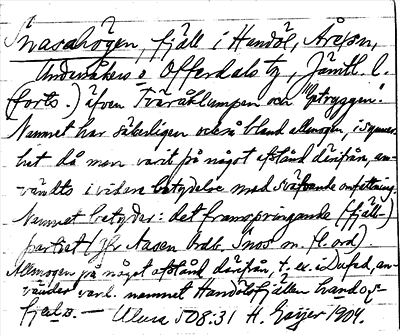 Snasahögen, fjäll i Handöl, Åresn,
Undersåkers o Offerdals tg, Jämtl. l.
(forts.) äfven Tväråklumpen och "Getryggen".
Namnet har säkerligen också bland allmogen, i synner-
het då man varit på något afstånd därifrån, an-
vändts i vidare betydelse med sväfvande omfattning.
Namnet betyder: det framspringande (fjäll-)
partiet (jfr Nasen Ordb. Snos m. fl. ord).
Allmogen på något afstånd därifrån, t. ex. i Dufed, an-
vänder namnet Handölsfjällen
— Ulma 508:31 H. Geijer 1904.